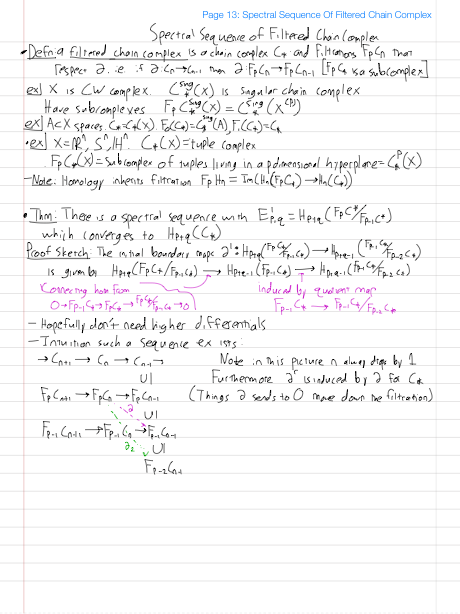 Page 13: Spectral Sequence Of Filtered Chain Complex
Spectral Sequence of Filtered Chain Complex
• Defn: a filtered chain complex is a chain complex C_* and filtrations F_pC_n that
respect ∂. i.e. if ∂: C_n→C_{n-1} then ∂: F_pC_n→F_pC_{n-1} [F_pC_* is a subcomplex]
ex] X is CW complex. C_*^{sing}(X) is singular chain complex
Have subcomplexes F_pC_*^{sing}(X) = C_*^{sing}(X^{(p)})
ex] A<X spaces. C_*=C_*(X). F_0(C_*)=C_*^{sing}(A), F_1(C_*)=C_*
• ex] X=ℝ^n, S^n, ℍ^n. C_*(X)=tuple complex
F_pC_*(X)=subcomplex of tuples living in a p dimensional hyperplane=C_*^p(X)
- Note: Homology inherits filtration F_pH_n = Im(H_n(F_pC_*)→H_n(C_*))
• Thm: There is a spectral sequence with E^1_{p,q} = H_{p+q}(F_pC_*/F_{p-1}C_*)
which converges to H_{p+q}(C_*)
Proof Sketch: The initial boundary maps ∂^1: H_{p+q}(F_pC_*/F_{p-1}C_*)→H_{p+q-1}(F_{p-1}C_*/F_{p-2}C_*)
is given by H_{p+q}(F_pC_*/F_{p-1}C_*) → H_{p+q-1}(F_{p-1}C_*) → H_{p+q-1}(F_{p-1}C_*/F_{p-2}C_*)
Connecting hom from
0→F_{p-1}C_*→F_pC_*→F_pC_*/F_{p-1}C_*→0
induced by quotient map
F_{p-1}C_* → F_{p-1}C_*/F_{p-2}C_*
- Hopefully don't need higher differentials
- Intuition such a sequence exists:
→ C_{n+1} → C_n → C_{n-1} →
Note in this picture n always drops by 1
U|
Furthermore ∂^r is induced by ∂ for C_*
F_pC_{n+1} → F_pC_n → F_pC_{n-1}
(Things ∂ sends to 0 move down the filtration)
∂_1 U|
F_{p-1}C_{n+1} → F_{p-1}C_n → F_{p-1}C_{n-1}
∂_2 U|
F_{p-2}C_{n-1}